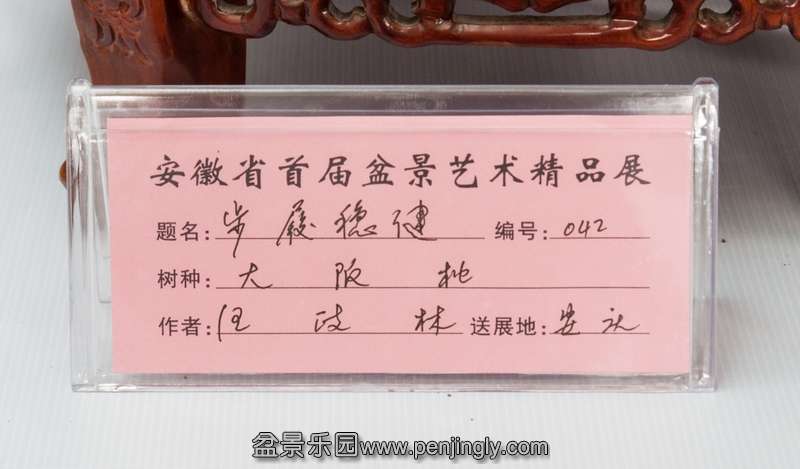 安徽省首届盆景艺术精品展
题名：步履稳健 编号：042
树种：大阪松
作者：汪政林 送展地：安庆
盆景乐园www.penjingly.com